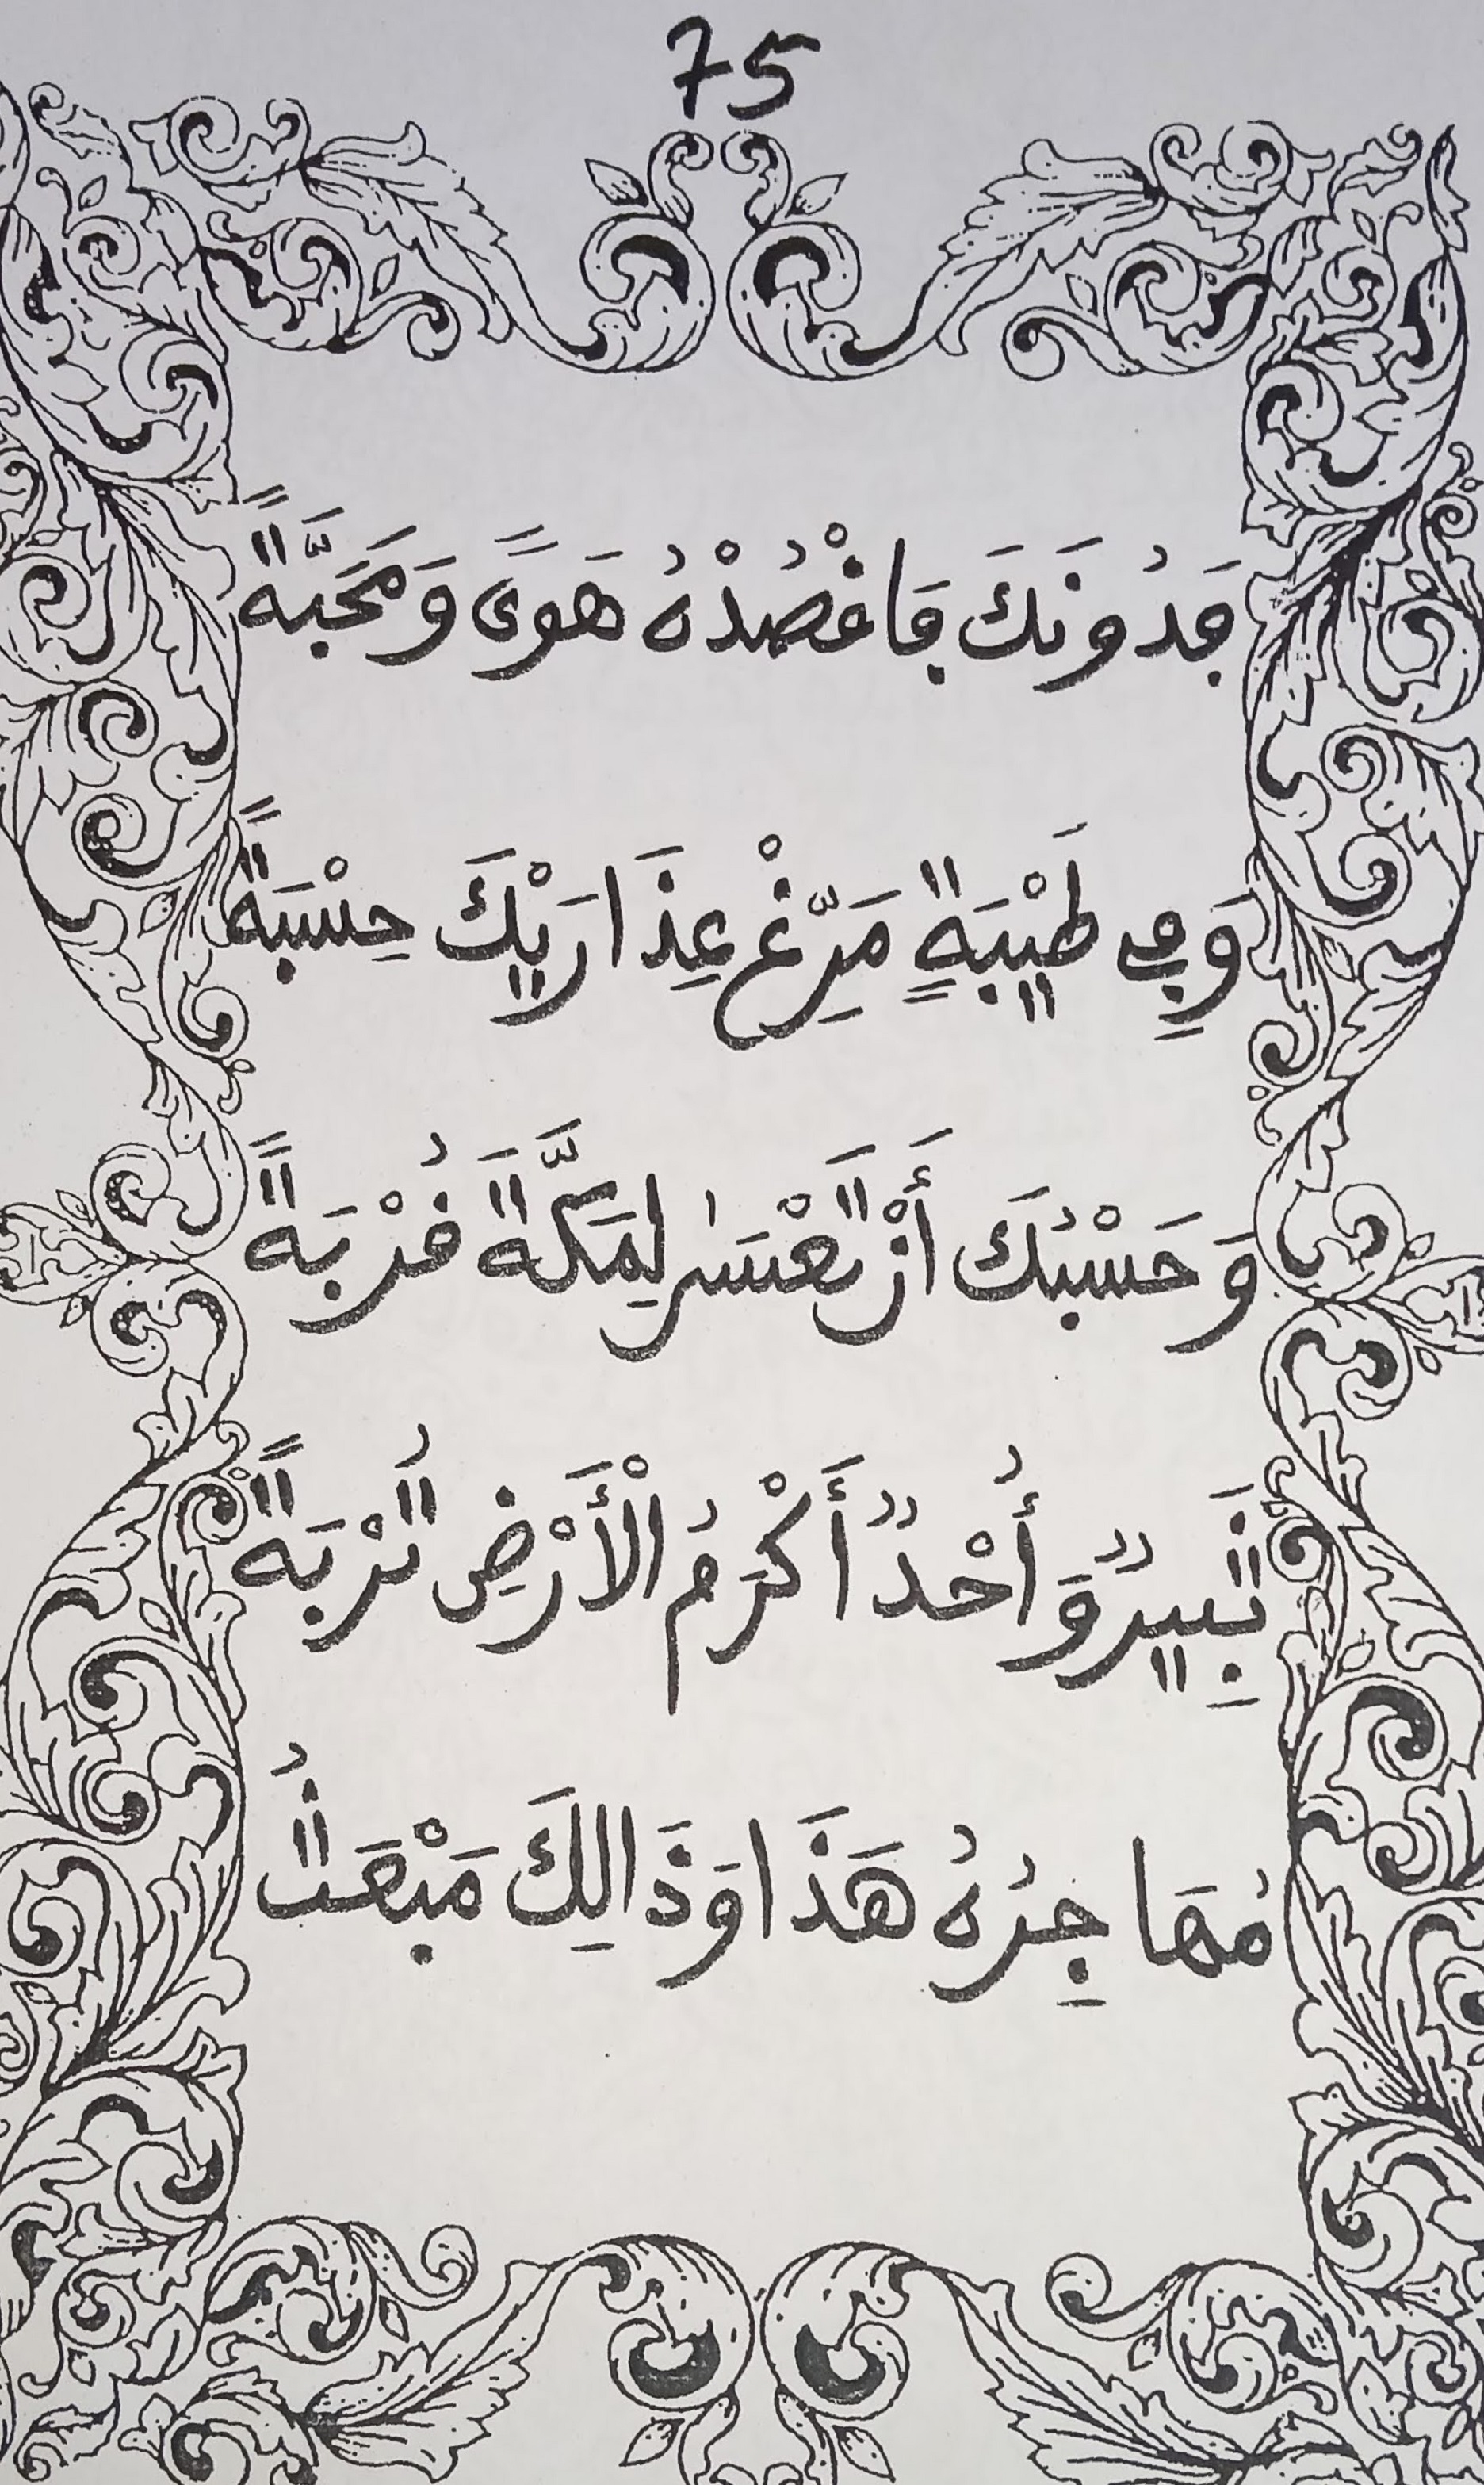 75
فَدُونَكَ فَاقْصُدْهُ هَوًى وَمَحَبَّةً
وَفِي طَيْبَةٍ مَرِّغْ عِذَارَيْكَ حِسْبَةً
وَحَسْبُكَ أَنْ تَعْشَىٰ لِمَكَّةَ قُرْبَةً
ثَبِيرٌ وَأُحْدٌ أَكْرَمُ الْأَرْضِ تُرْبَةً
مُهَاجِرُهُ هَذَا وَذَالِكَ مَبْعَثُ